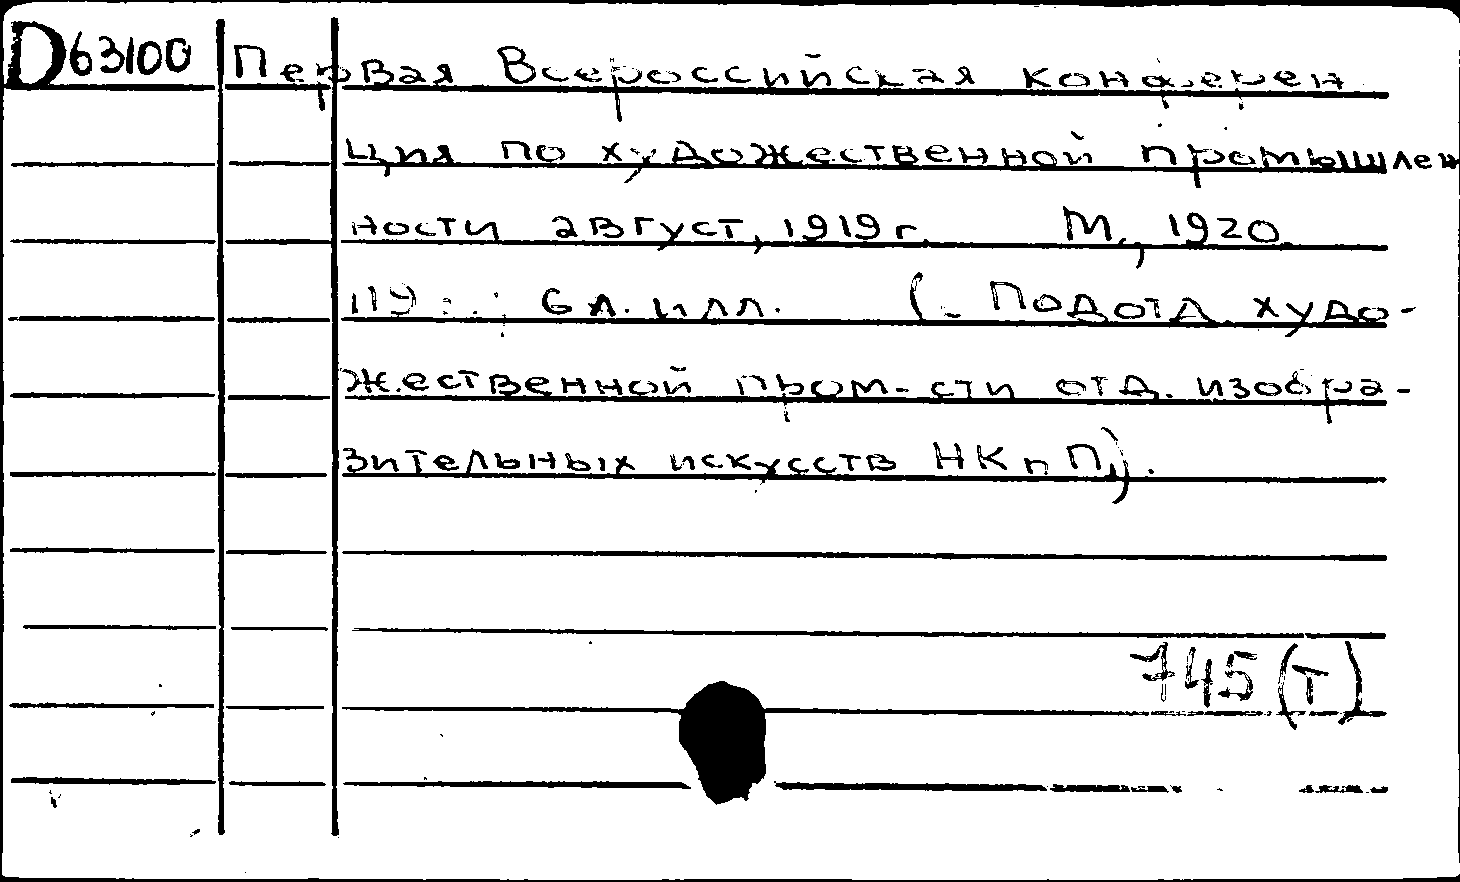 D63100 Первая Всероссийская конферен
ция по художественной промышлен
ности август, 1919 г. М., 1920.
6 л. илл. (Подотд. худо-
жественной пром-сти отд. изобра-
зительных искусств НКпП).
745 (т)